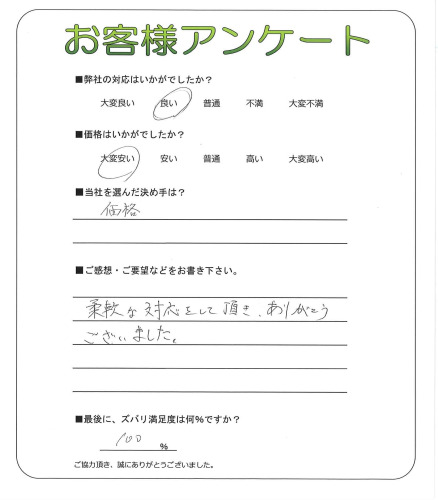 お客様アンケート
■弊社の対応はいかがでしたか？
大変良い 良い 普通 不満 大変不満
■価格はいかがでしたか？
大変安い 安い 普通 高い 大変高い
■当社を選んだ決め手は？
価格
■ご感想・ご要望などをお書き下さい。
柔軟な対応をして頂き、ありがとう
ございました。
■最後に、ズバリ満足度は何％ですか？
100 ％
ご協力頂き、誠にありがとうございました。